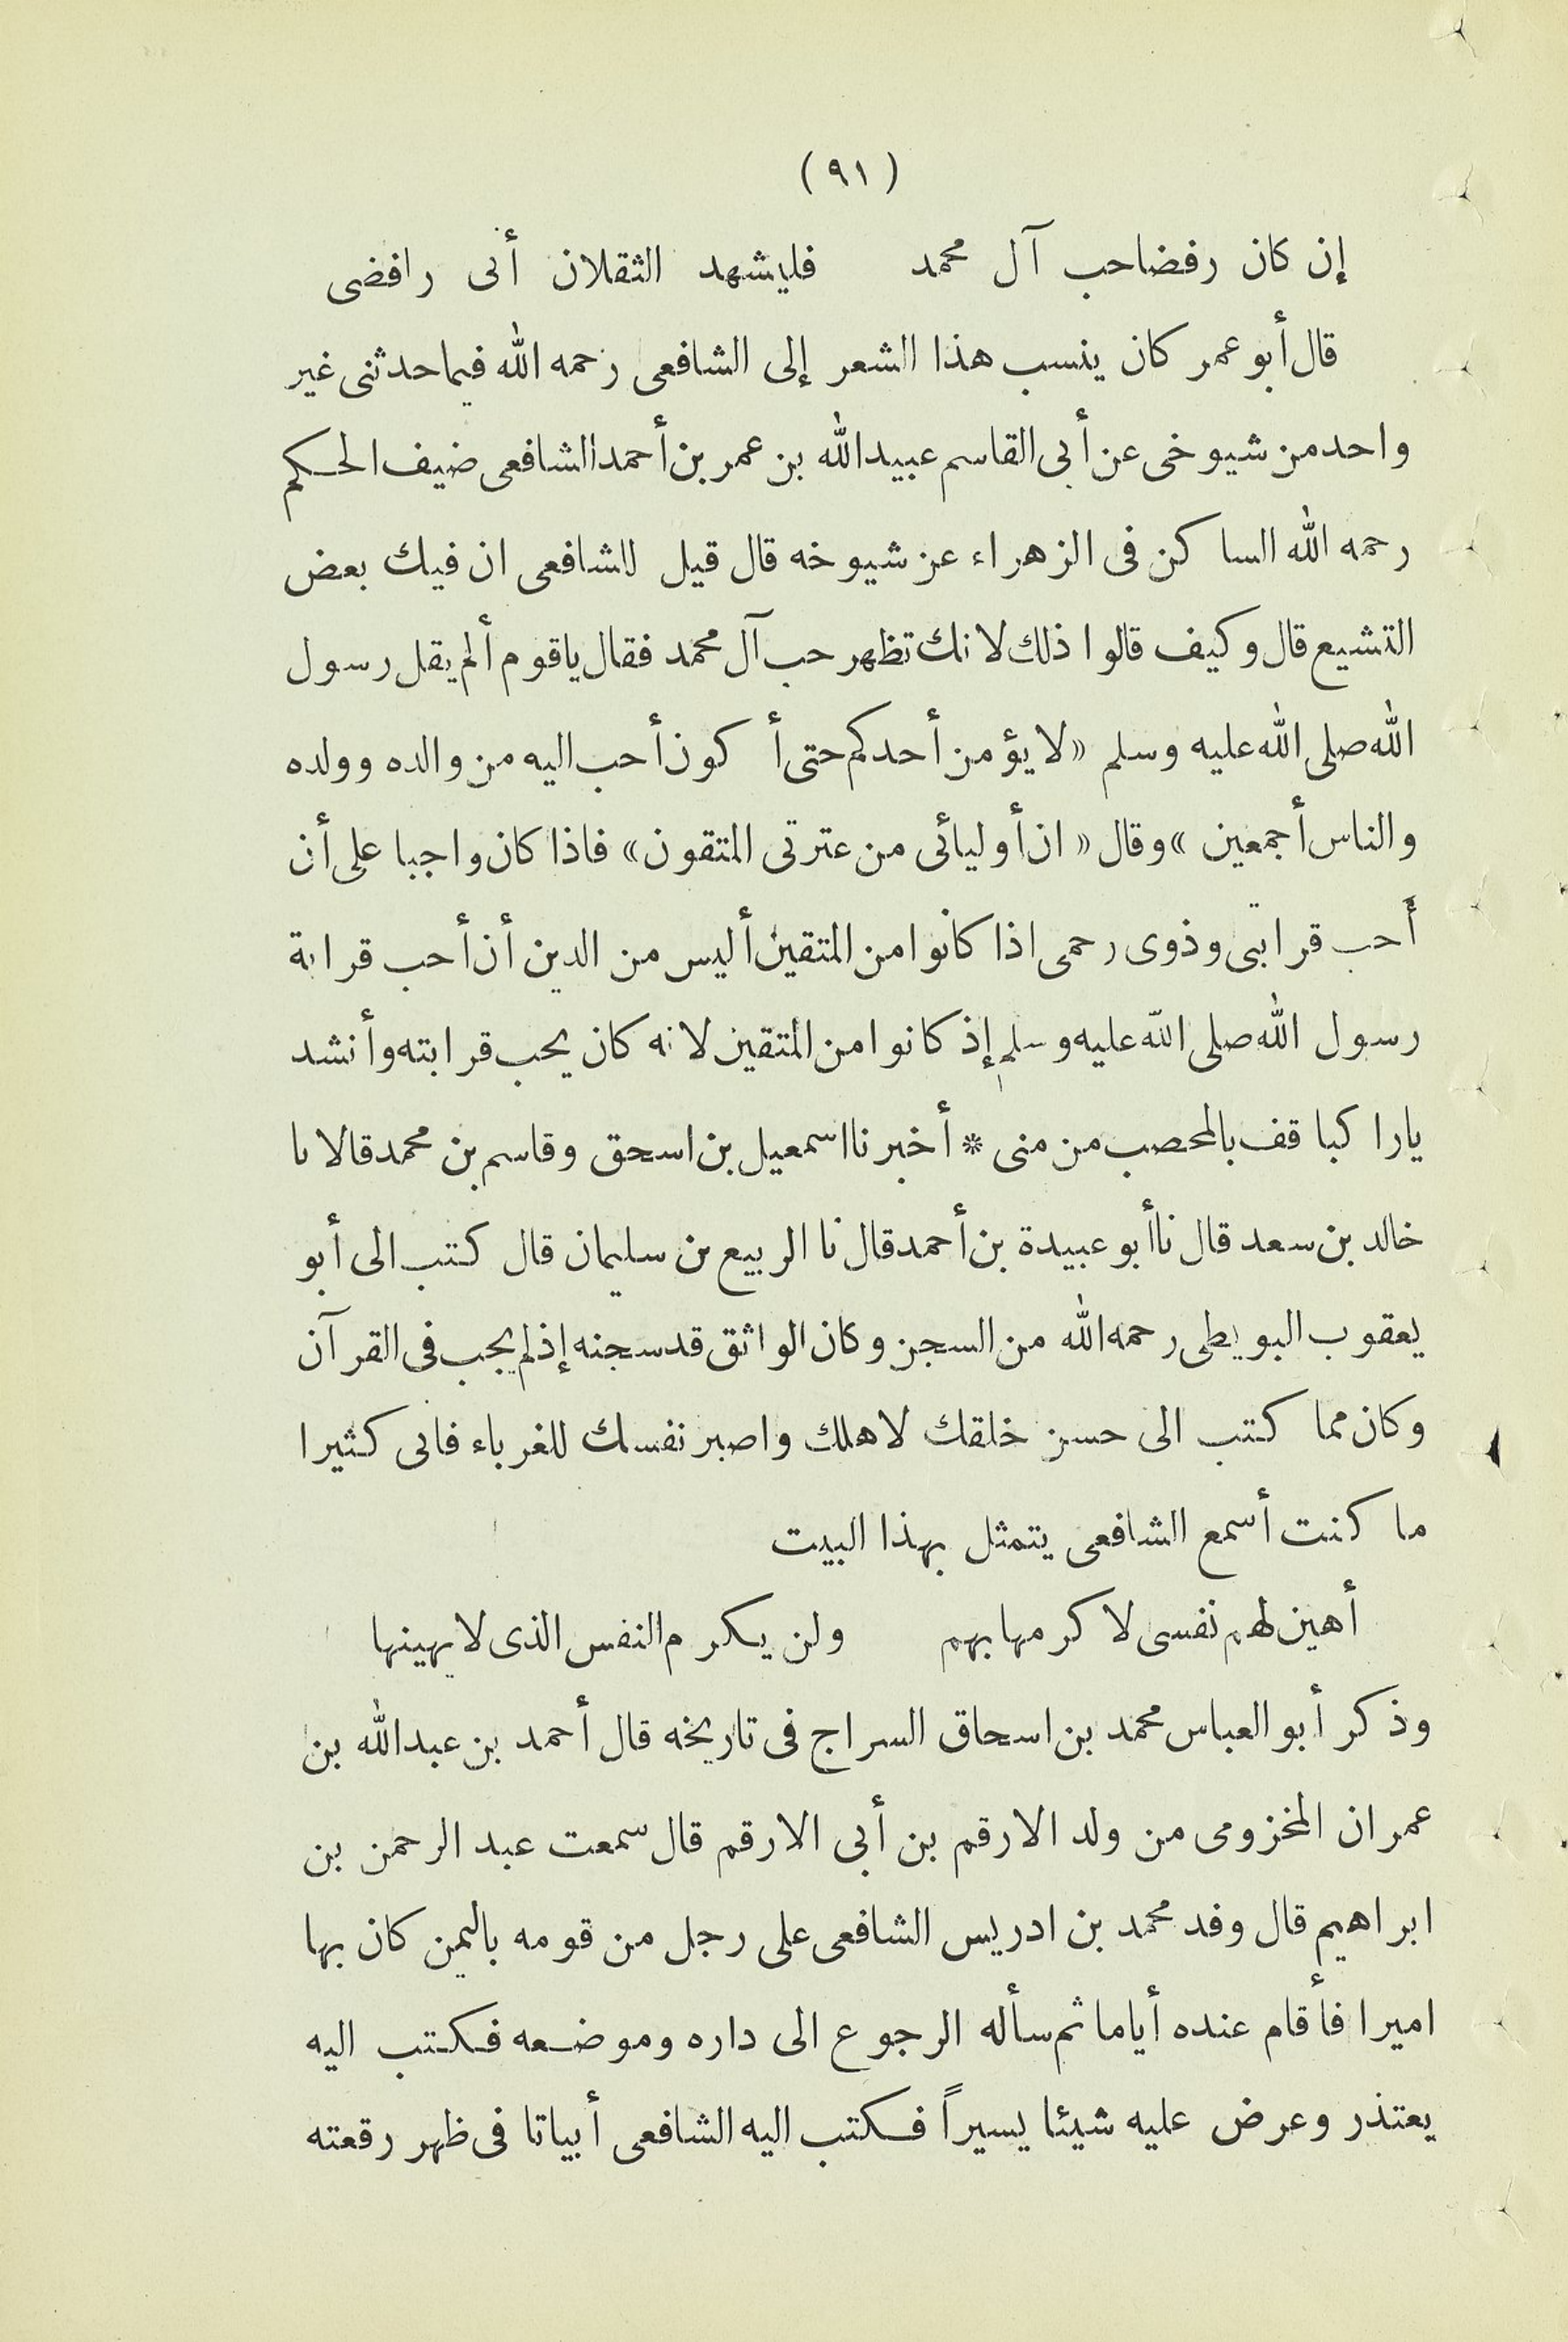 (٩١)
إن كان رفضا حب آل محمد فليشهد الثقلان أنى رافضى
قال أبو عمر كان ينسب هذا الشعر إلى الشافعى رحمه الله فيما حدثنى غير
واحد من شيوخى عن أبى القاسم عبيد الله بن عمر بن أحمد الشافعى ضيف الحكم
رحمه الله الساكن فى الزهراء عن شيوخه قال قيل للشافعى ان فيك بعض
التشيع قال وكيف قالوا ذلك لانك تظهر حب آل محمد فقال ياقوم ألم يقل رسول
الله صلى الله عليه وسلم «لا يؤمن أحدكم حتى أكون أحب اليه من والده وولده
والناس أجمعين» وقال «ان أوليائى من عترتى المتقون» فاذا كان واجبا على أن
أحب قرابتى وذوى رحمى اذا كانوا من المتقين أليس من الدين أن أحب قرابة
رسول الله صلى الله عليه وسلم إذ كانوا من المتقين لانه كان يحب قرابته وأنشد
ياراكبا قف بالمحصب من منى * أخبرنا اسمعيل بن اسحق وقاسم بن محمد قالا نا
خالد بن سعد قال نا أبو عبيدة بن أحمد قال نا الربيع بن سليمان قال كتب الى أبو
يعقوب البويطى رحمه الله من السجن وكان الواثق قد سجنه إذ لم يجب فى القرآن
وكان مما كتب الى حسن خلقك لاهلك واصبر نفسك للغرباء فانى كثيرا
ما كنت أسمع الشافعى يتمثل بهذا البيت
أهين لهم نفسى لاكرمها بهم ولن يكرم النفس الذى لا يهينها
وذكر أبو العباس محمد بن اسحاق السراج فى تاريخه قال أحمد بن عبد الله بن
عمران المخزومى من ولد الارقم بن أبى الارقم قال سمعت عبد الرحمن بن
ابراهيم قال وفد محمد بن ادريس الشافعى على رجل من قومه باليمن كان بها
اميرا فأقام عنده أياما ثم سأله الرجوع الى داره وموضعه فكتب اليه
يعتذر وعرض عليه شيئا يسيراً فكتب اليه الشافعى أبياتا فى ظهر رقعته